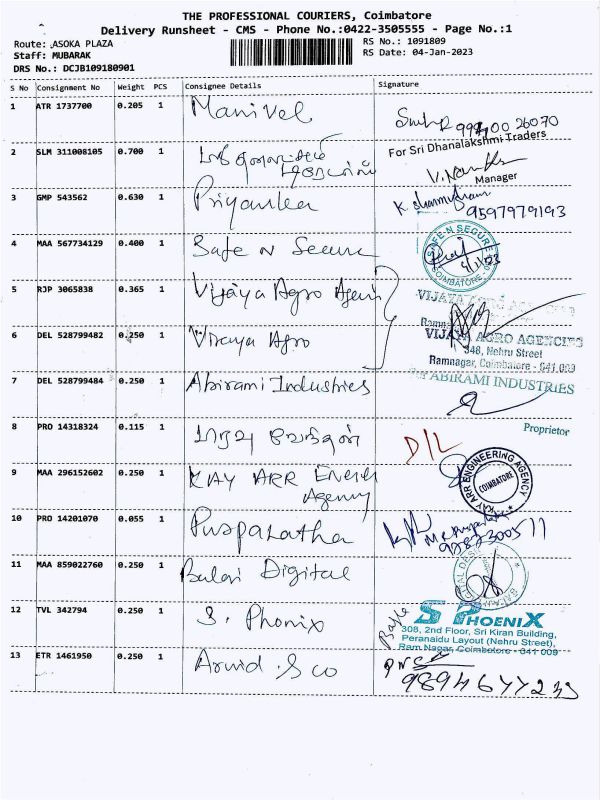 THE PROFESSIONAL COURIERS, Coimbatore
Delivery Runsheet - CMS - Phone No.:0422-3505555 - Page No.:1
Route: ASOKA PLAZA
Staff: MUBARAK
DRS No.: DCJB109180901
RS No.: 1091809
RS Date: 04-Jan-2023
S No Consignment No Weight PCS Consignee Details Signature
1 ATR 1737700 0.205 1 Manivel
2 SLM 311008105 0.700 1
For Sri Dhanalakshmi Traders
Manager
3 GMP 543562 0.630 1 Priyanka
9597979193
4 MAA 567734129 0.400 1 Safe N Secure
SAFE-N-SECURE
COIMBATORE
5 RJP 3065838 0.365 1 Vijaya Agro Agenci
VIJAYA AGRO AGENCIES
6 DEL 528799482 0.250 1 Vijaya Agro
VIJAYA AGRO AGENCIES
348, Nehru Street
Ramnagar, Coimbatore - 641 009
7 DEL 528799484 0.250 1 Abirami Industries
For ABIRAMI INDUSTRIES
Proprietor
8 PRO 14318324 0.115 1
D/L
9 MAA 296152602 0.250 1 KAY ARR Energy
Agency
KAY ARR ENGINEERING AGENCY
COIMBATORE
10 PRO 14201070 0.055 1 Puspalatha
11 MAA 859022760 0.250 1 Balai Digital
12 TVL 342794 0.250 1 S. Phonix
S PHOENIX
308, 2nd Floor, Sri Kiran Building,
Peranaidu Layout (Nehru Street),
Ram Nagar, Coimbatore - 641 009
13 ETR 1461950 0.250 1 Arvid & co